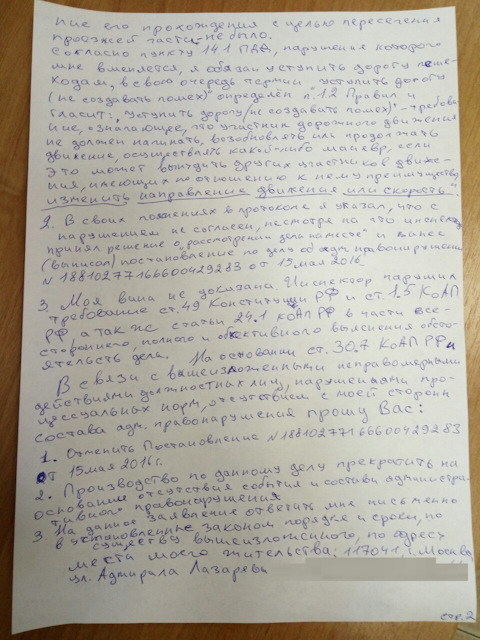 ние его прохождения с целью пересечения
проезжей части не было.
Согласно пункту 14.1 ПДД, нарушение которого
мне вменяется, я обязан уступить дорогу пеше-
ходам, в свою очередь термин "Уступить дорогу
(не создавать помех)" определён п. 1.2 Правил и
гласит: "Уступить дорогу (не создавать помех)" - требова-
ние, означающее, что участник дорожного движения
не должен начинать, возобновлять или продолжать
движение, осуществлять какой-либо манёвр, если
это может вынудить других участников движе-
ния, имеющих по отношению к нему преимущество,
изменить направление движения или скорость."
2. В своих пояснениях в протоколе я указал, что с
нарушением не согласен, несмотря на что инспектор
принял решение о "рассмотрении дела на месте" и вынес
(выписал) постановление по делу об адм. правонарушении
N 18810277166600429283 от 15 мая 2016
3. Моя вина не доказана. Инспектор нарушил
требование ст. 49 Конституции РФ и ст. 1.5 КоАП
РФ а так же статьи 24.1 КоАП РФ в части все-
стороннего, полного и объективного выяснения обсто-
ятельств дела. На основании ст. 30.7 КоАП РФ и
В связи с вышеизложенными неправомерными
действиями должностных лиц, нарушениями про-
цессуальных норм, отсутствием с моей стороны
состава адм. правонарушения прошу Вас:
1. Отменить Постановление N 18810277166600429283
от 15 мая 2016г.
2. Производство по данному делу прекратить, на
основании отсутствия события и состава администра-
тивного правонарушения
3. На данное заявление ответить мне письменно
в установленные законом порядке и сроки, по
существу вышеизложенного, по адресу
места моего жительства: 117041, г. Москва
ул. Адмирала Лазарева
стр. 2